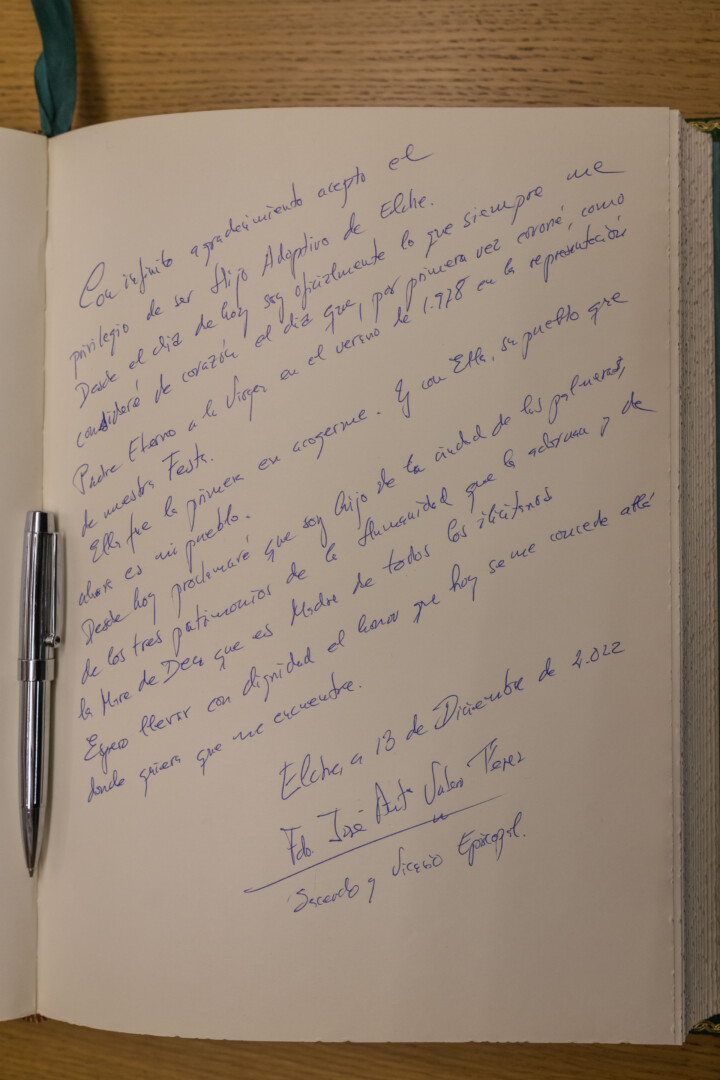 Con infinito agradecimiento acepto el
privilegio de ser Hijo Adoptivo de Elche.
Desde el día de hoy soy oficialmente lo que siempre me
consideré de corazón el día que, por primera vez coroné, como
Padre Eterno a la Virgen en el verano de 1.978 en la representación
de nuestra Festa.
Ella fue la primera en acogerme. Y con Ella, su pueblo que
ahora es mi pueblo.
Desde hoy proclamaré que soy hijo de la ciudad de las palmeras,
de los tres patrimonios de la Humanidad que la adornan y de
la Mare de Deu que es Madre de todos los ilicitanos
Espero llevar con dignidad el honor que hoy se me concede allá
donde quiera que me encuentre.
Elche, a 13 de Diciembre de 2.022
Fdo. José Antº Valero Pérez
y Vicario Episcopal.